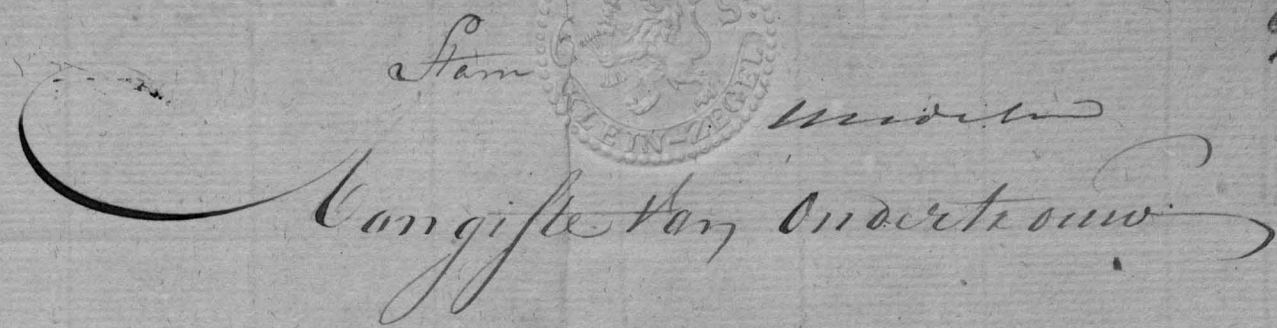 Stam
KLEIN-ZEGEL
Aangifte van Ondertrouw